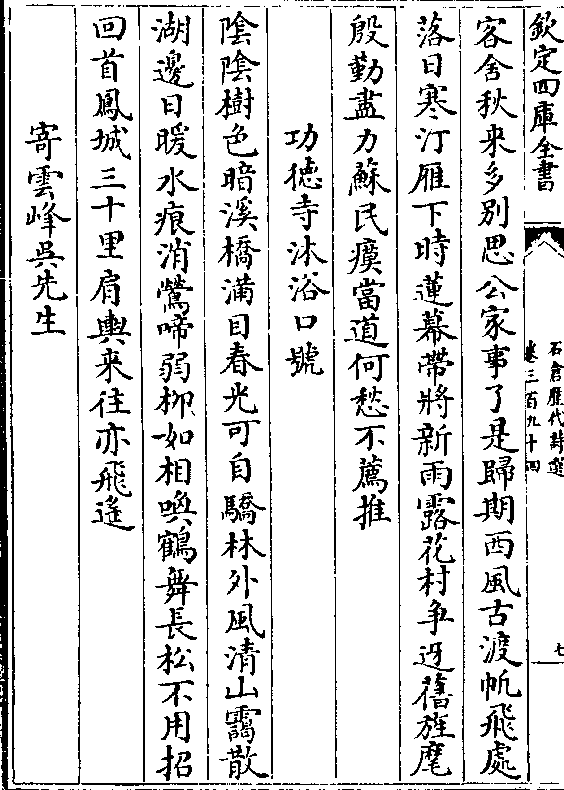 欽定四庫全書
石倉歷代詩選
卷三百九十四
七
客舍秋来多别思公家事了是歸期西風古渡帆飛處
落日寒汀雁下時蓮幕帶將新雨露花村争迓舊旌麾
殷勤盡力蘇民瘼當道何愁不薦推
功德寺沐浴口號
陰陰樹色暗溪橋滿目春光可自驕林外風清山靄散
湖邊日暖水痕消鶯啼弱栁如相喚鶴舞長松不用招
回首鳳城三十里肩輿来往亦飛遥
寄雲峰吳先生